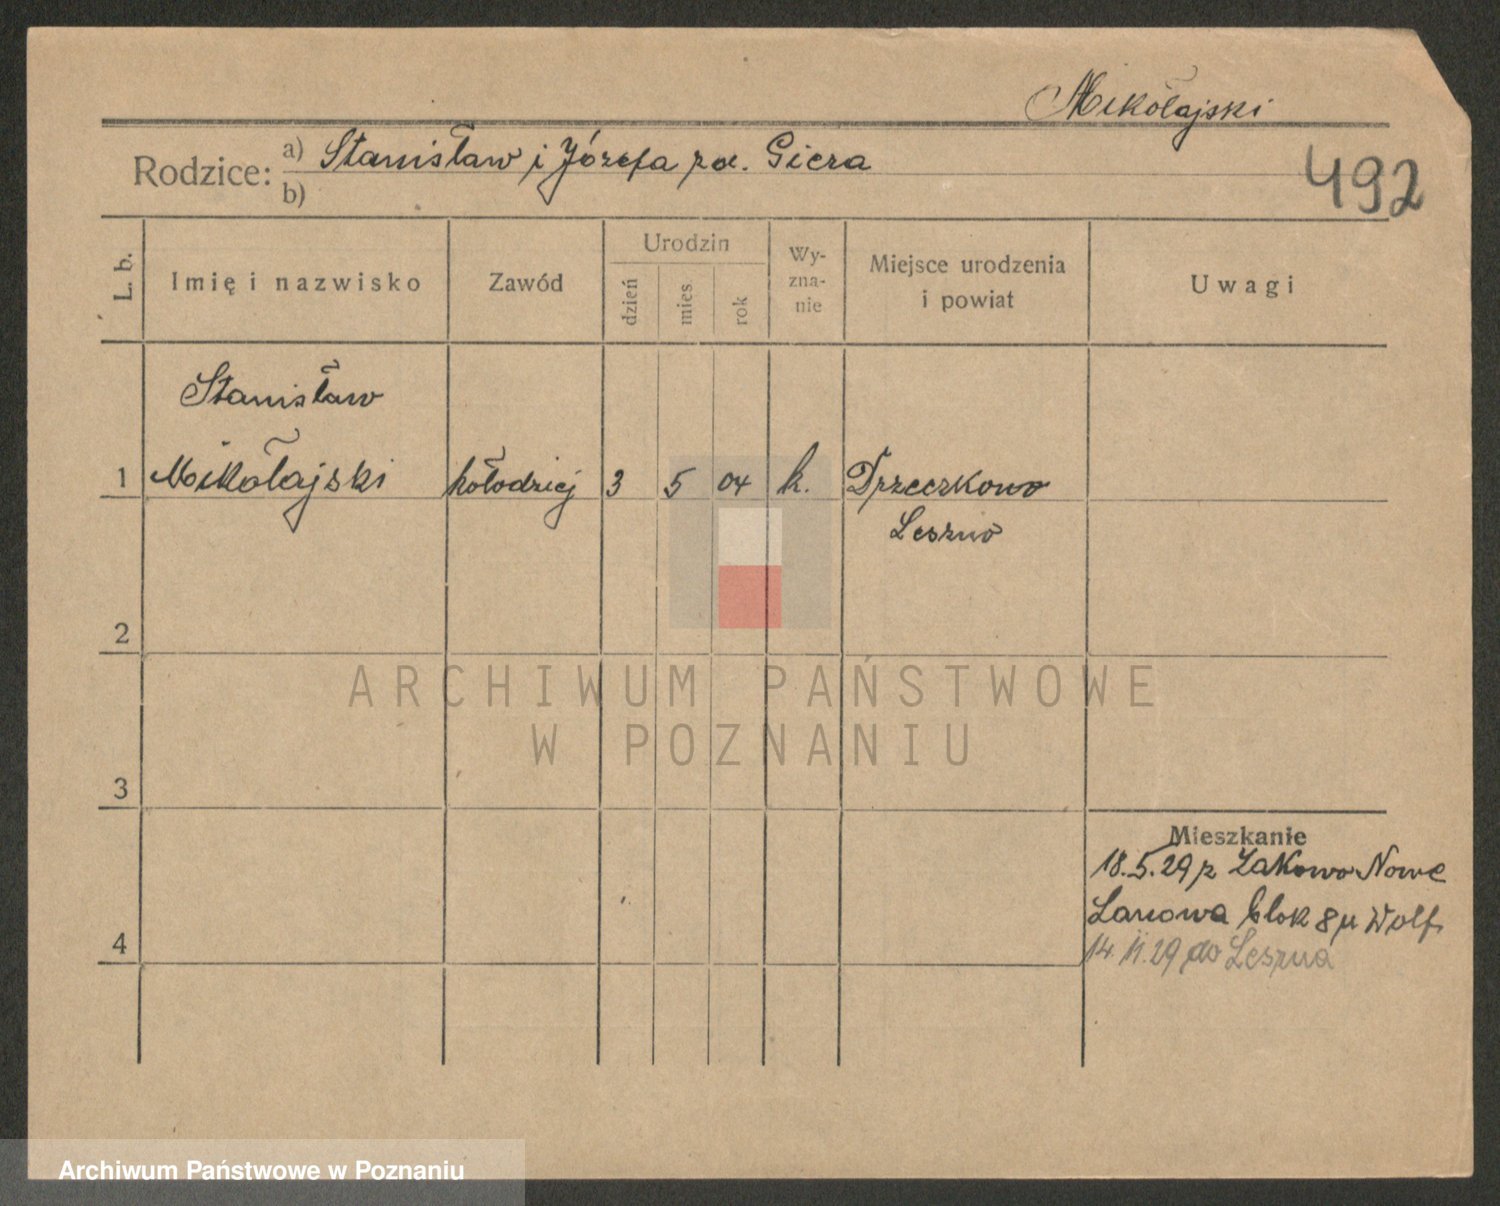 Mikołajski
Rodzice: a) Stanisław i Józefa zd. Giera
b)
492
L. b.
Imię i nazwisko
Zawód
Urodzin
dzień
mies
rok
Wy-
zna-
nie
Miejsce urodzenia
i powiat
Uwagi
Stanisław
1 Mikołajski kołodziej 3 5 04 k. Drzeczkowo
Leszno
2
3
4
Mieszkanie
18.5.29 z Łakowo Nowe
Łanowa blok 8 u Wolf
14.11.29 do Leszna
ARCHIWUM PAŃSTWOWE
W POZNANIU
Archiwum Państwowe w Poznaniu